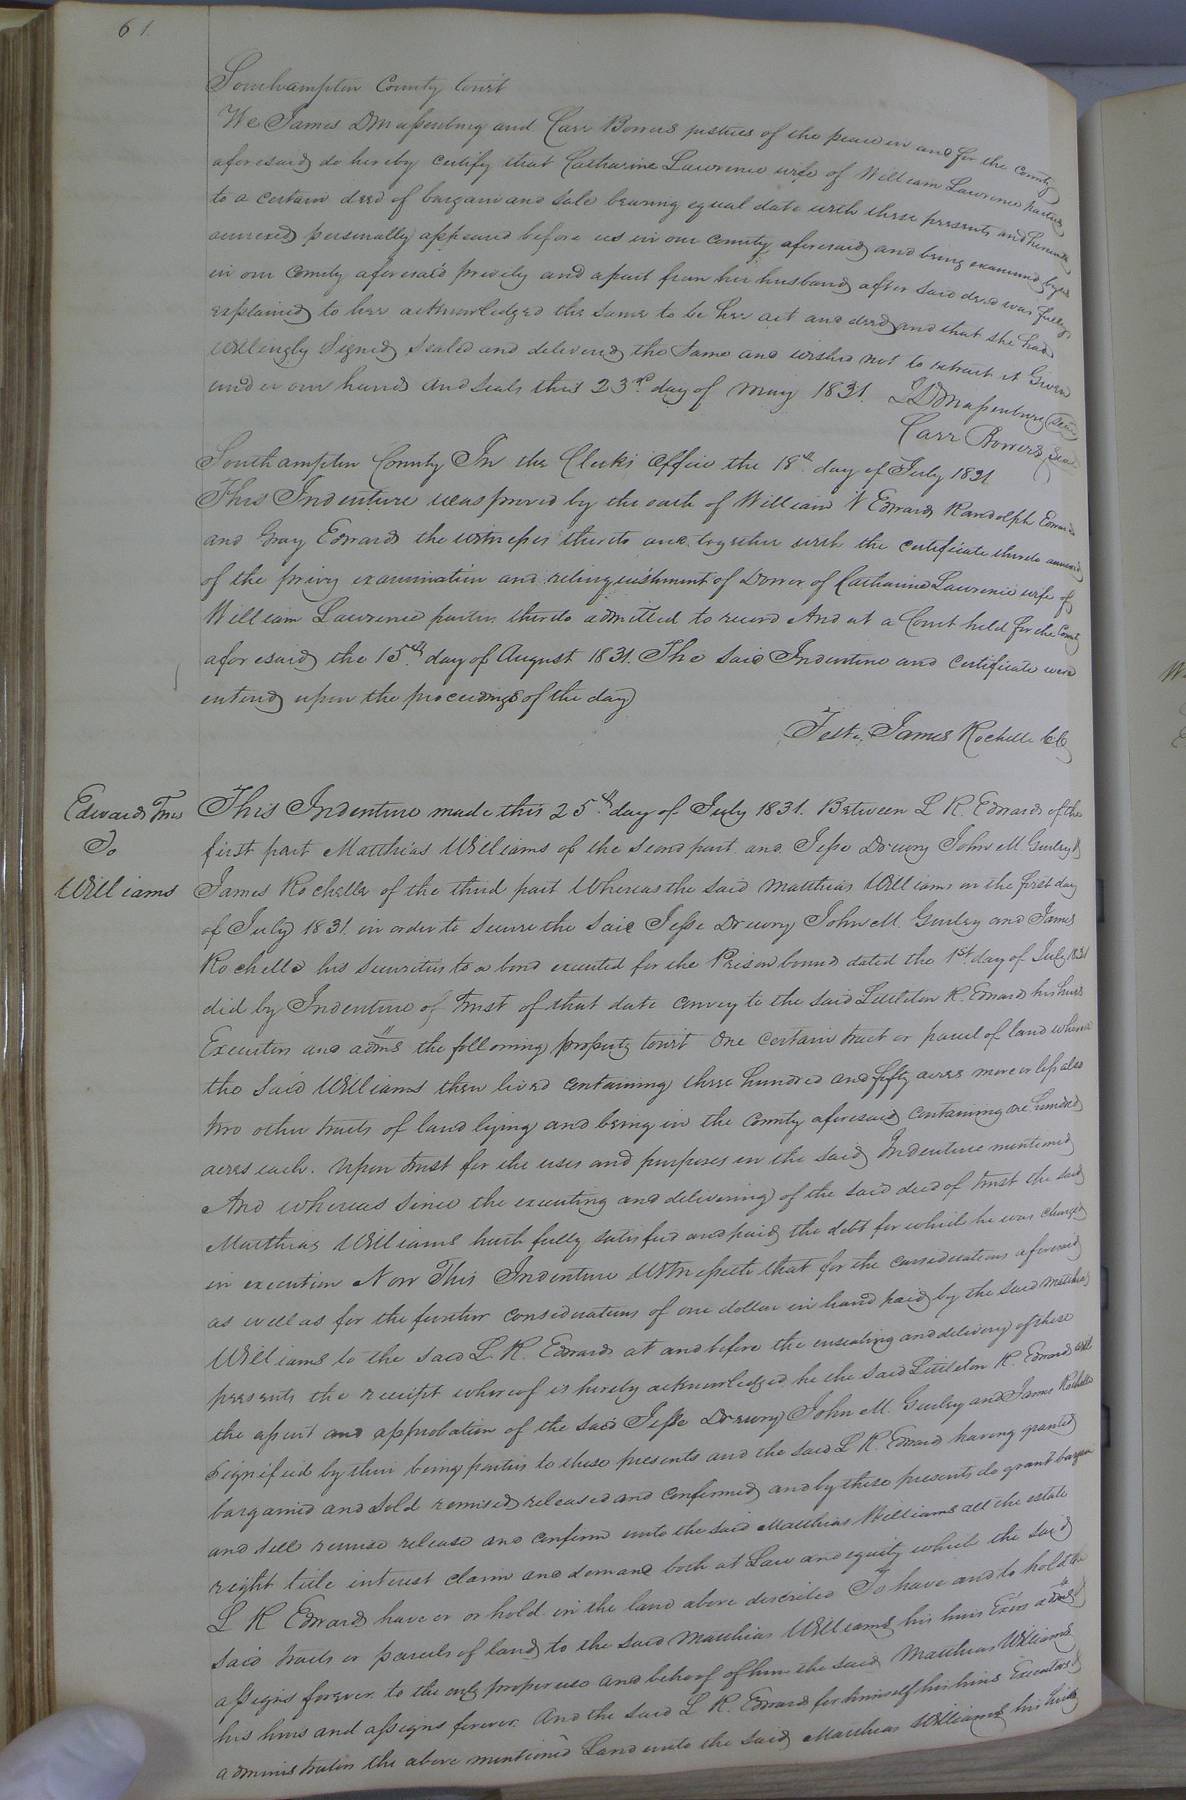 61
Southampton County towit
We James D Massenburg and Carr Bowers justices of the peace in and for the County
aforesaid do hereby certify that Catharine Lawrence wife of William Lawrence parties
to a certain deed of bargain and sale bearing equal date with these presents and hereunto
annexed personally appeared before us in our County aforesaid and being examined by us
in our County aforesaid privily and apart from her husband after said deed was fully
explained to her acknowledged the same to be her act and deed and that she had
willingly signed sealed and delivered the same and wished not to retract it Given
under our hands and seals this 23rd day of May 1831. J D Massenburg seal
Carr Bowers seal
Southampton County In the Clerks office the 18th day of July 1831
This Indenture was proved by the oath of William Edwards Randolph Edwards
and Gray Edwards the witnesses thereto and together with the certificate thereto annexed
of the privy examination and relinquishment of Dower of Catharine Lawrence wife of
William Lawrence parties thereto admitted to record And at a Court held for the County
aforesaid the 15th day of August 1831. The said Indenture and certificate were
entered upon the proceedings of the day
Teste, James Rochelle CC
Edwards Trus
To
Williams
This Indenture made this 25th day of July 1831. Between L R. Edwards of the
first part Matthias Williams of the second part and Jesse Drewry John M. Gurley &
James Rochelle of the third part Whereas the said Matthias Williams on the first day
of July 1831. in order to secure the said Jesse Drewry John M. Gurley and James
Rochelle his securities to a bond executed for the Prison bounds dated the 1st day of July 1831
did by Indenture of trust of that date convey to the said Littleton R. Edwards his heirs
Executors and adms the following property towit One certain tract or parcel of land whereon
the said Williams then lived containing three hundred and fifty acres more or less also
two other tracts of land lying and being in the County aforesaid containing one hundred
acres each. Upon trust for the uses and purposes in the said Indenture mentioned
And whereas since the executing and delivering of the said deed of trust the said
Matthias Williams hath fully satisfied and paid the debt for which he was charged
in execution Now This Indenture Witnesseth that for the considerations aforesaid
as well as for the further consideration of one dollar in hand paid by the said Matthias
Williams to the said L. R. Edwards at and before the ensealing and delivery of these
presents the receipt whereof is hereby acknowledged he the said Littleton R. Edwards with
the assent and approbation of the said Jesse Drewry John M. Gurley and James Rochelle
signified by their being parties to these presents and the said L R. Edwards having granted
bargained and sold remised released and confirmed and by these presents do grant bargain
and sell remise release and confirm unto the said Matthias Williams all the estate
right title interest claim and demand both at Law and equity which the said
L R Edwards have or or hold in the land above described To have and to hold the
said tracts or parcels of land to the said Matthias Williams his heirs Exors adms &
assigns forever to the only proper use and behoof of him the said Matthias Williams
his heirs and assigns forever. And the said L R. Edwards for himself his heirs Executors &
administrators the above mentioned Land unto the said Matthias Williams his heirs